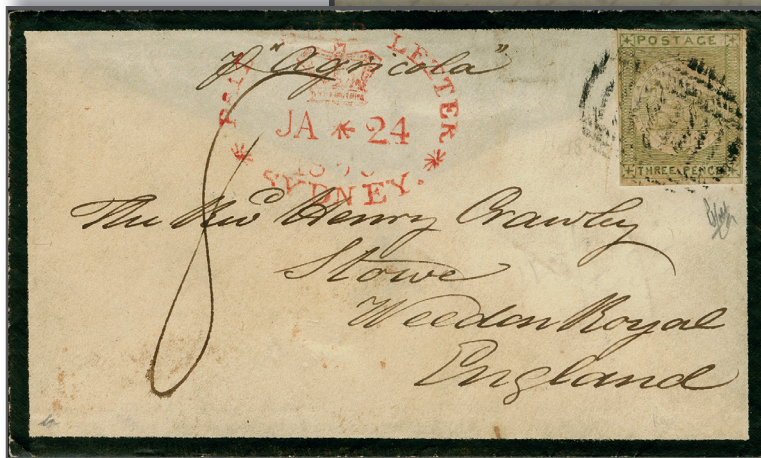 p "Agricola"
LETTER
JA * 24
SYDNEY.
8
POSTAGE
THREE PENCE
The Revd Henry Crawley
Stowe
Weedon Royal
England